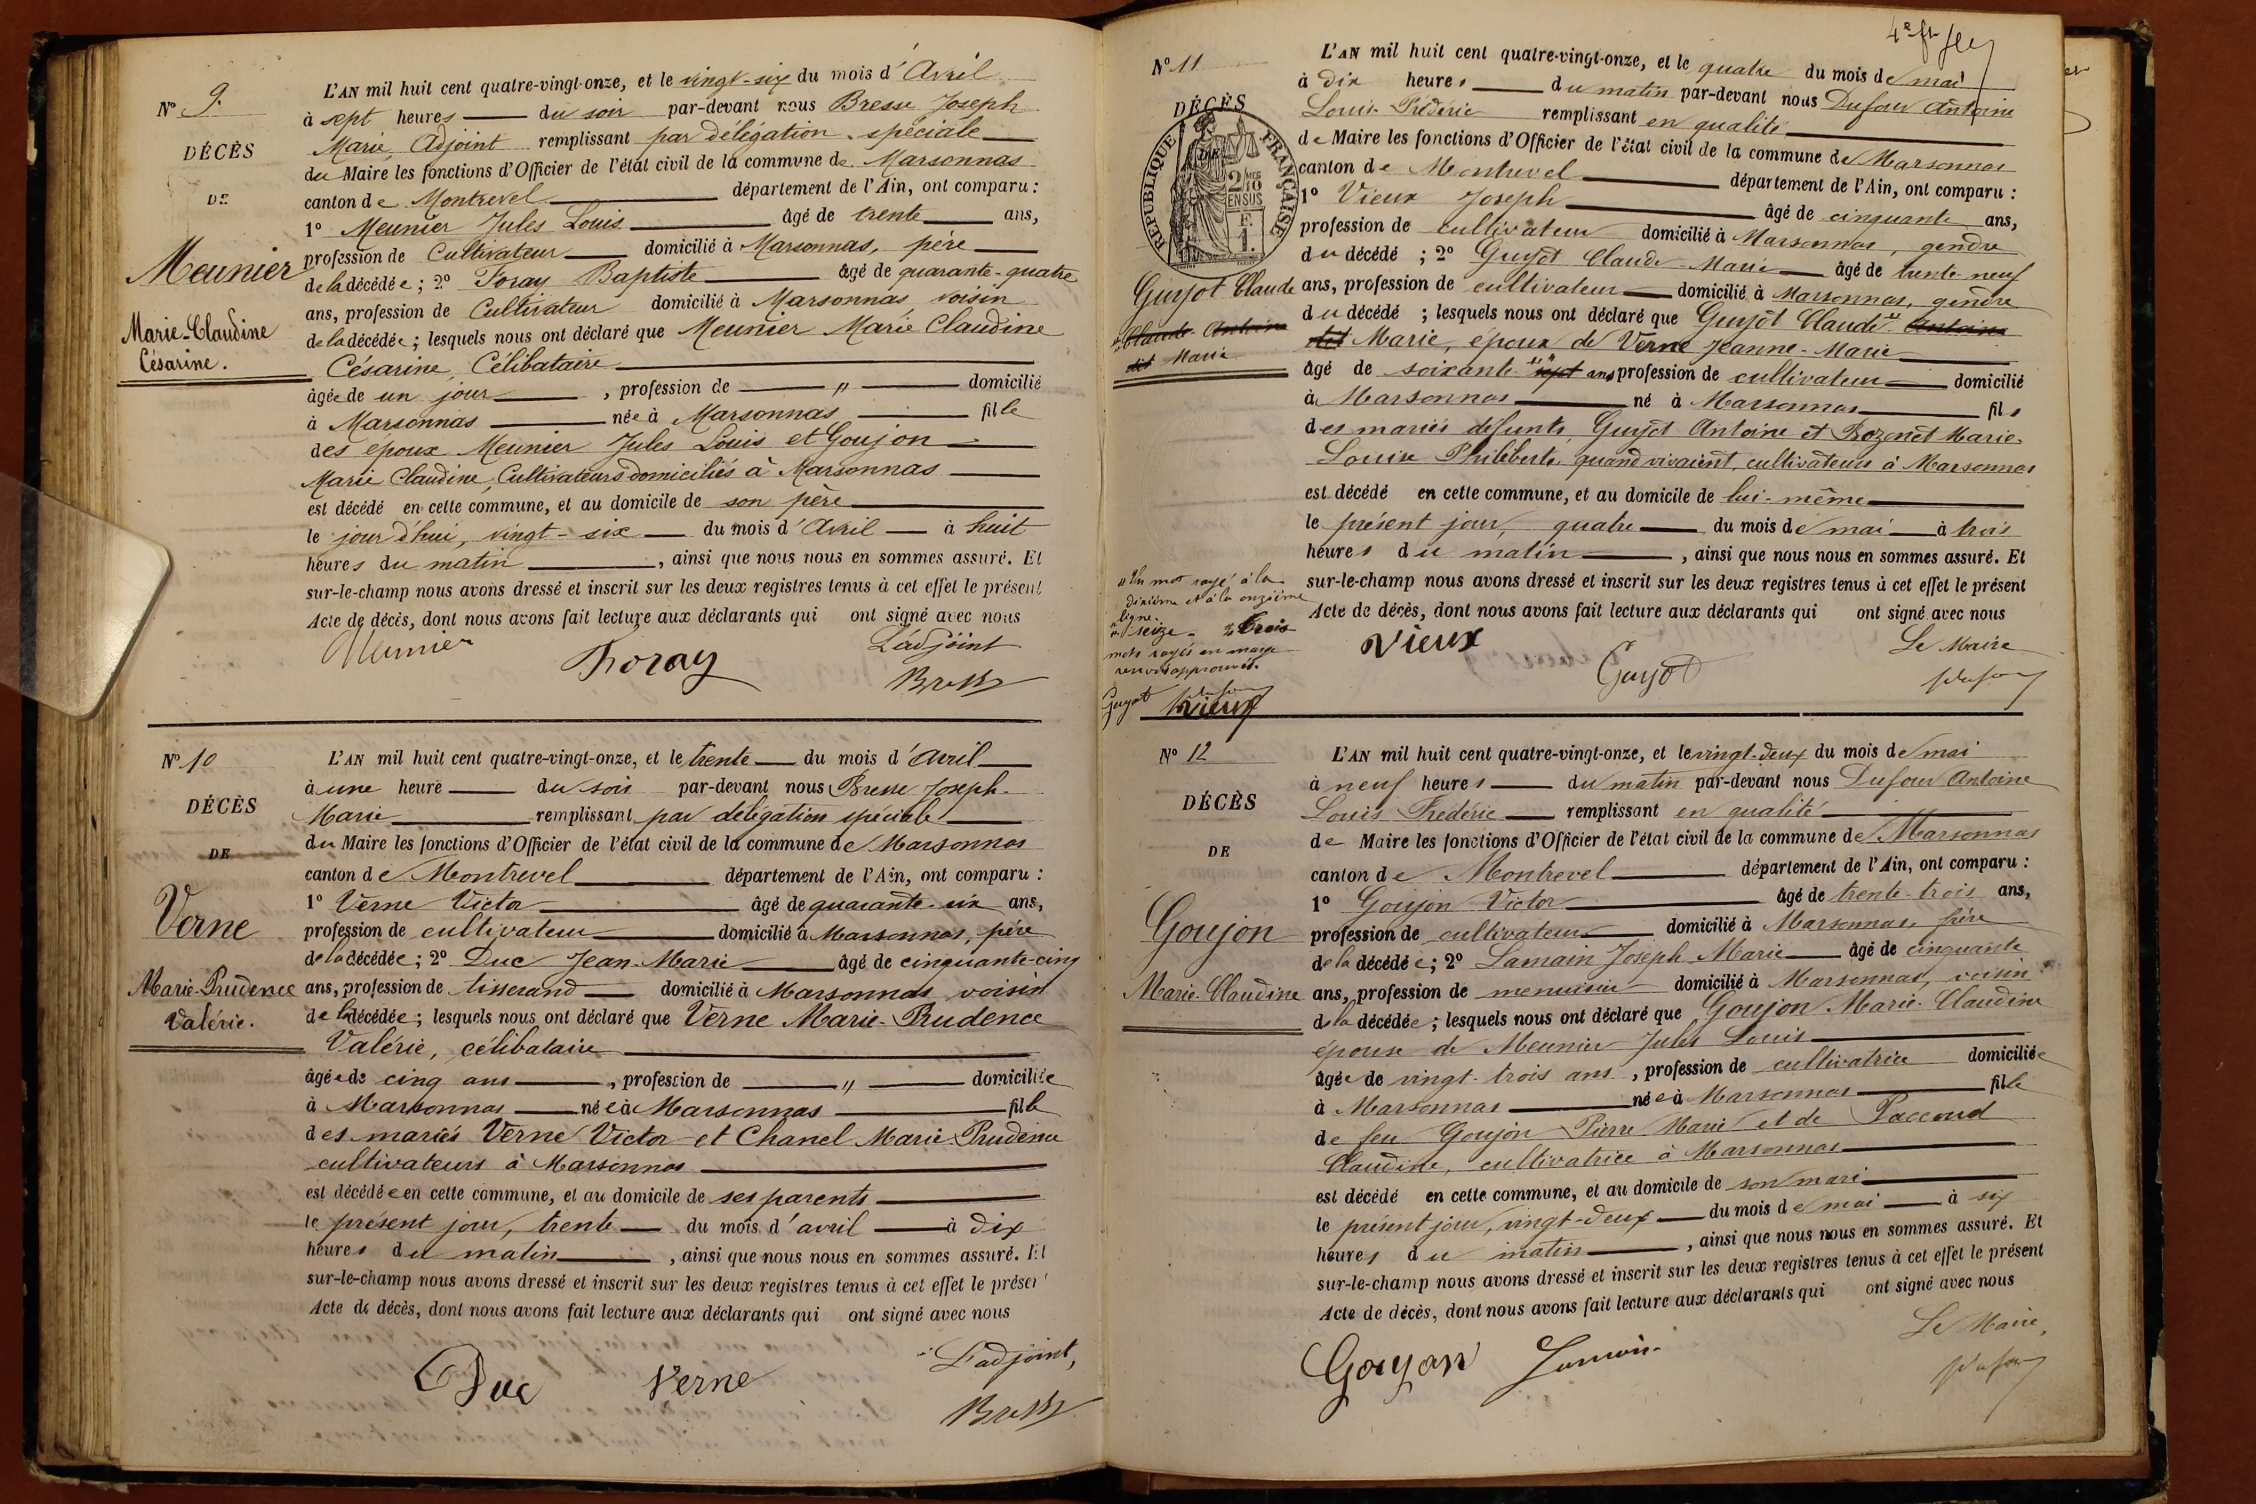 N° 9.
DÉCÈS
DE
Meunier
Marie-Claudine
Césarine.
L'AN mil huit cent quatre-vingt-onze, et le vingt-six du mois d'Avril
à sept heures du soir par-devant nous Bresse Joseph
Marie, Adjoint remplissant par délégation spéciale
du Maire les fonctions d'Officier de l'état civil de la commune de Marsonnas
canton de Montrevel département de l'Ain, ont comparu :
1° Meunier Jules Louis âgé de trente ans,
profession de Cultivateur domicilié à Marsonnas, père
de la décédée ; 2° Foray Baptiste âgé de quarante-quatre
ans, profession de Cultivateur domicilié à Marsonnas, voisin
de la décédée ; lesquels nous ont déclaré que Meunier Marie Claudine
Césarine, Célibataire
âgée de un jour , profession de " domicilié
à Marsonnas née à Marsonnas fille
des époux Meunier Jules Louis et Goujon
Marie Claudine, Cultivateurs domiciliés à Marsonnas
est décédé en cette commune, et au domicile de son père
le jour d'hui, vingt-six du mois d'Avril à huit
heures du matin , ainsi que nous nous en sommes assuré. Et
sur-le-champ nous avons dressé et inscrit sur les deux registres tenus à cet effet le présent
Acte de décès, dont nous avons fait lecture aux déclarants qui ont signé avec nous
Meunier Foray L'adjoint
Bresse
N° 10
DÉCÈS
DE
Verne
Marie-Prudence
Valérie.
L'AN mil huit cent quatre-vingt-onze, et le trente du mois d'avril
à une heure du soir par-devant nous Bresse Joseph-
Marie remplissant par délégation spéciale
du Maire les fonctions d'Officier de l'état civil de la commune de Marsonnas
canton de Montrevel département de l'Ain, ont comparu :
1° Verne Victor âgé de quarante-six ans,
profession de cultivateur domicilié à Marsonnas, père
de la décédée ; 2° Duc Jean-Marie âgé de cinquante-cinq
ans, profession de tisserand domicilié à Marsonnas, voisin
de la décédée ; lesquels nous ont déclaré que Verne Marie-Prudence
Valérie, célibataire
âgée de cinq ans , profession de " domiciliée
à Marsonnas née à Marsonnas fille
des mariés Verne Victor et Chanel Marie Prudence
cultivateurs à Marsonnas
est décédée en cette commune, et au domicile de ses parents
le présent jour, trente du mois d'avril à dix
heures du matin , ainsi que nous nous en sommes assuré. Et
sur-le-champ nous avons dressé et inscrit sur les deux registres tenus à cet effet le présent
Acte de décès, dont nous avons fait lecture aux déclarants qui ont signé avec nous
L'adjoint,
Duc Verne Bresse
N° 11
DÉCÈS
RÉPUBLIQUE FRANÇAISE
2/10 EN SUS
F. 1.
Guyot Claude
Claude Antoine
dit Marie
L'AN mil huit cent quatre-vingt-onze, et le quatre du mois de mai
à dix heures du matin par-devant nous Dufour Antoine
Louis-Frédéric remplissant en qualité
de Maire les fonctions d'Officier de l'état civil de la commune de Marsonnas
canton de Montrevel département de l'Ain, ont comparu :
1° Vieux Joseph âgé de cinquante ans,
profession de cultivateur domicilié à Marsonnas, gendre
du décédé ; 2° Guyot Claude-Marie âgé de trente-neuf
ans, profession de cultivateur domicilié à Marsonnas, gendre
du décédé ; lesquels nous ont déclaré que Guyot Claude Antoine
dit Marie, époux de Verne Jeanne-Marie
âgé de soixante-sept ans, profession de cultivateur domicilié
à Marsonnas né à Marsonnas fils
des mariés défunts, Guyot Antoine et Bozonet Marie-
Louise Philiberte, quand vivaient, cultivateurs à Marsonnas
est décédé en cette commune, et au domicile de lui-même
le présent jour, quatre du mois de mai à trois
heures du matin , ainsi que nous nous en sommes assuré. Et
sur-le-champ nous avons dressé et inscrit sur les deux registres tenus à cet effet le présent
Acte de décès, dont nous avons fait lecture aux déclarants qui ont signé avec nous
Un mot rayé à la
dixième et à la onzième
ligne.
seize. Trois
mots rayés en marge
renvoi approuvés.
Guyot Dufour
Vieux
Vieux Guyot Le Maire
Dufour
N° 12
DÉCÈS
DE
Goujon
Marie-Claudine
L'AN mil huit cent quatre-vingt-onze, et le vingt-deux du mois de mai
à neuf heures du matin par-devant nous Dufour Antoine
Louis Frédéric remplissant en qualité
de Maire les fonctions d'Officier de l'état civil de la commune de Marsonnas
canton de Montrevel département de l'Ain, ont comparu :
1° Goujon Victor âgé de trente-trois ans,
profession de cultivateur domicilié à Marsonnas, frère
de la décédée ; 2° Lamain Joseph Marie âgé de cinquante
ans, profession de menuisier domicilié à Marsonnas, voisin
de la décédée ; lesquels nous ont déclaré que Goujon Marie-Claudine
épouse de Meunier Jules Louis
âgée de vingt-trois ans , profession de cultivatrice domiciliée
à Marsonnas née à Marsonnas fille
de feu Goujon Pierre Marie et de Paccoud
Claudine, cultivatrice à Marsonnas
est décédé en cette commune, et au domicile de son mari
le présent jour, vingt-deux du mois de mai à six
heures du matin , ainsi que nous nous en sommes assuré. Et
sur-le-champ nous avons dressé et inscrit sur les deux registres tenus à cet effet le présent
Acte de décès, dont nous avons fait lecture aux déclarants qui ont signé avec nous
Le Maire,
Goujon Lamain Dufour